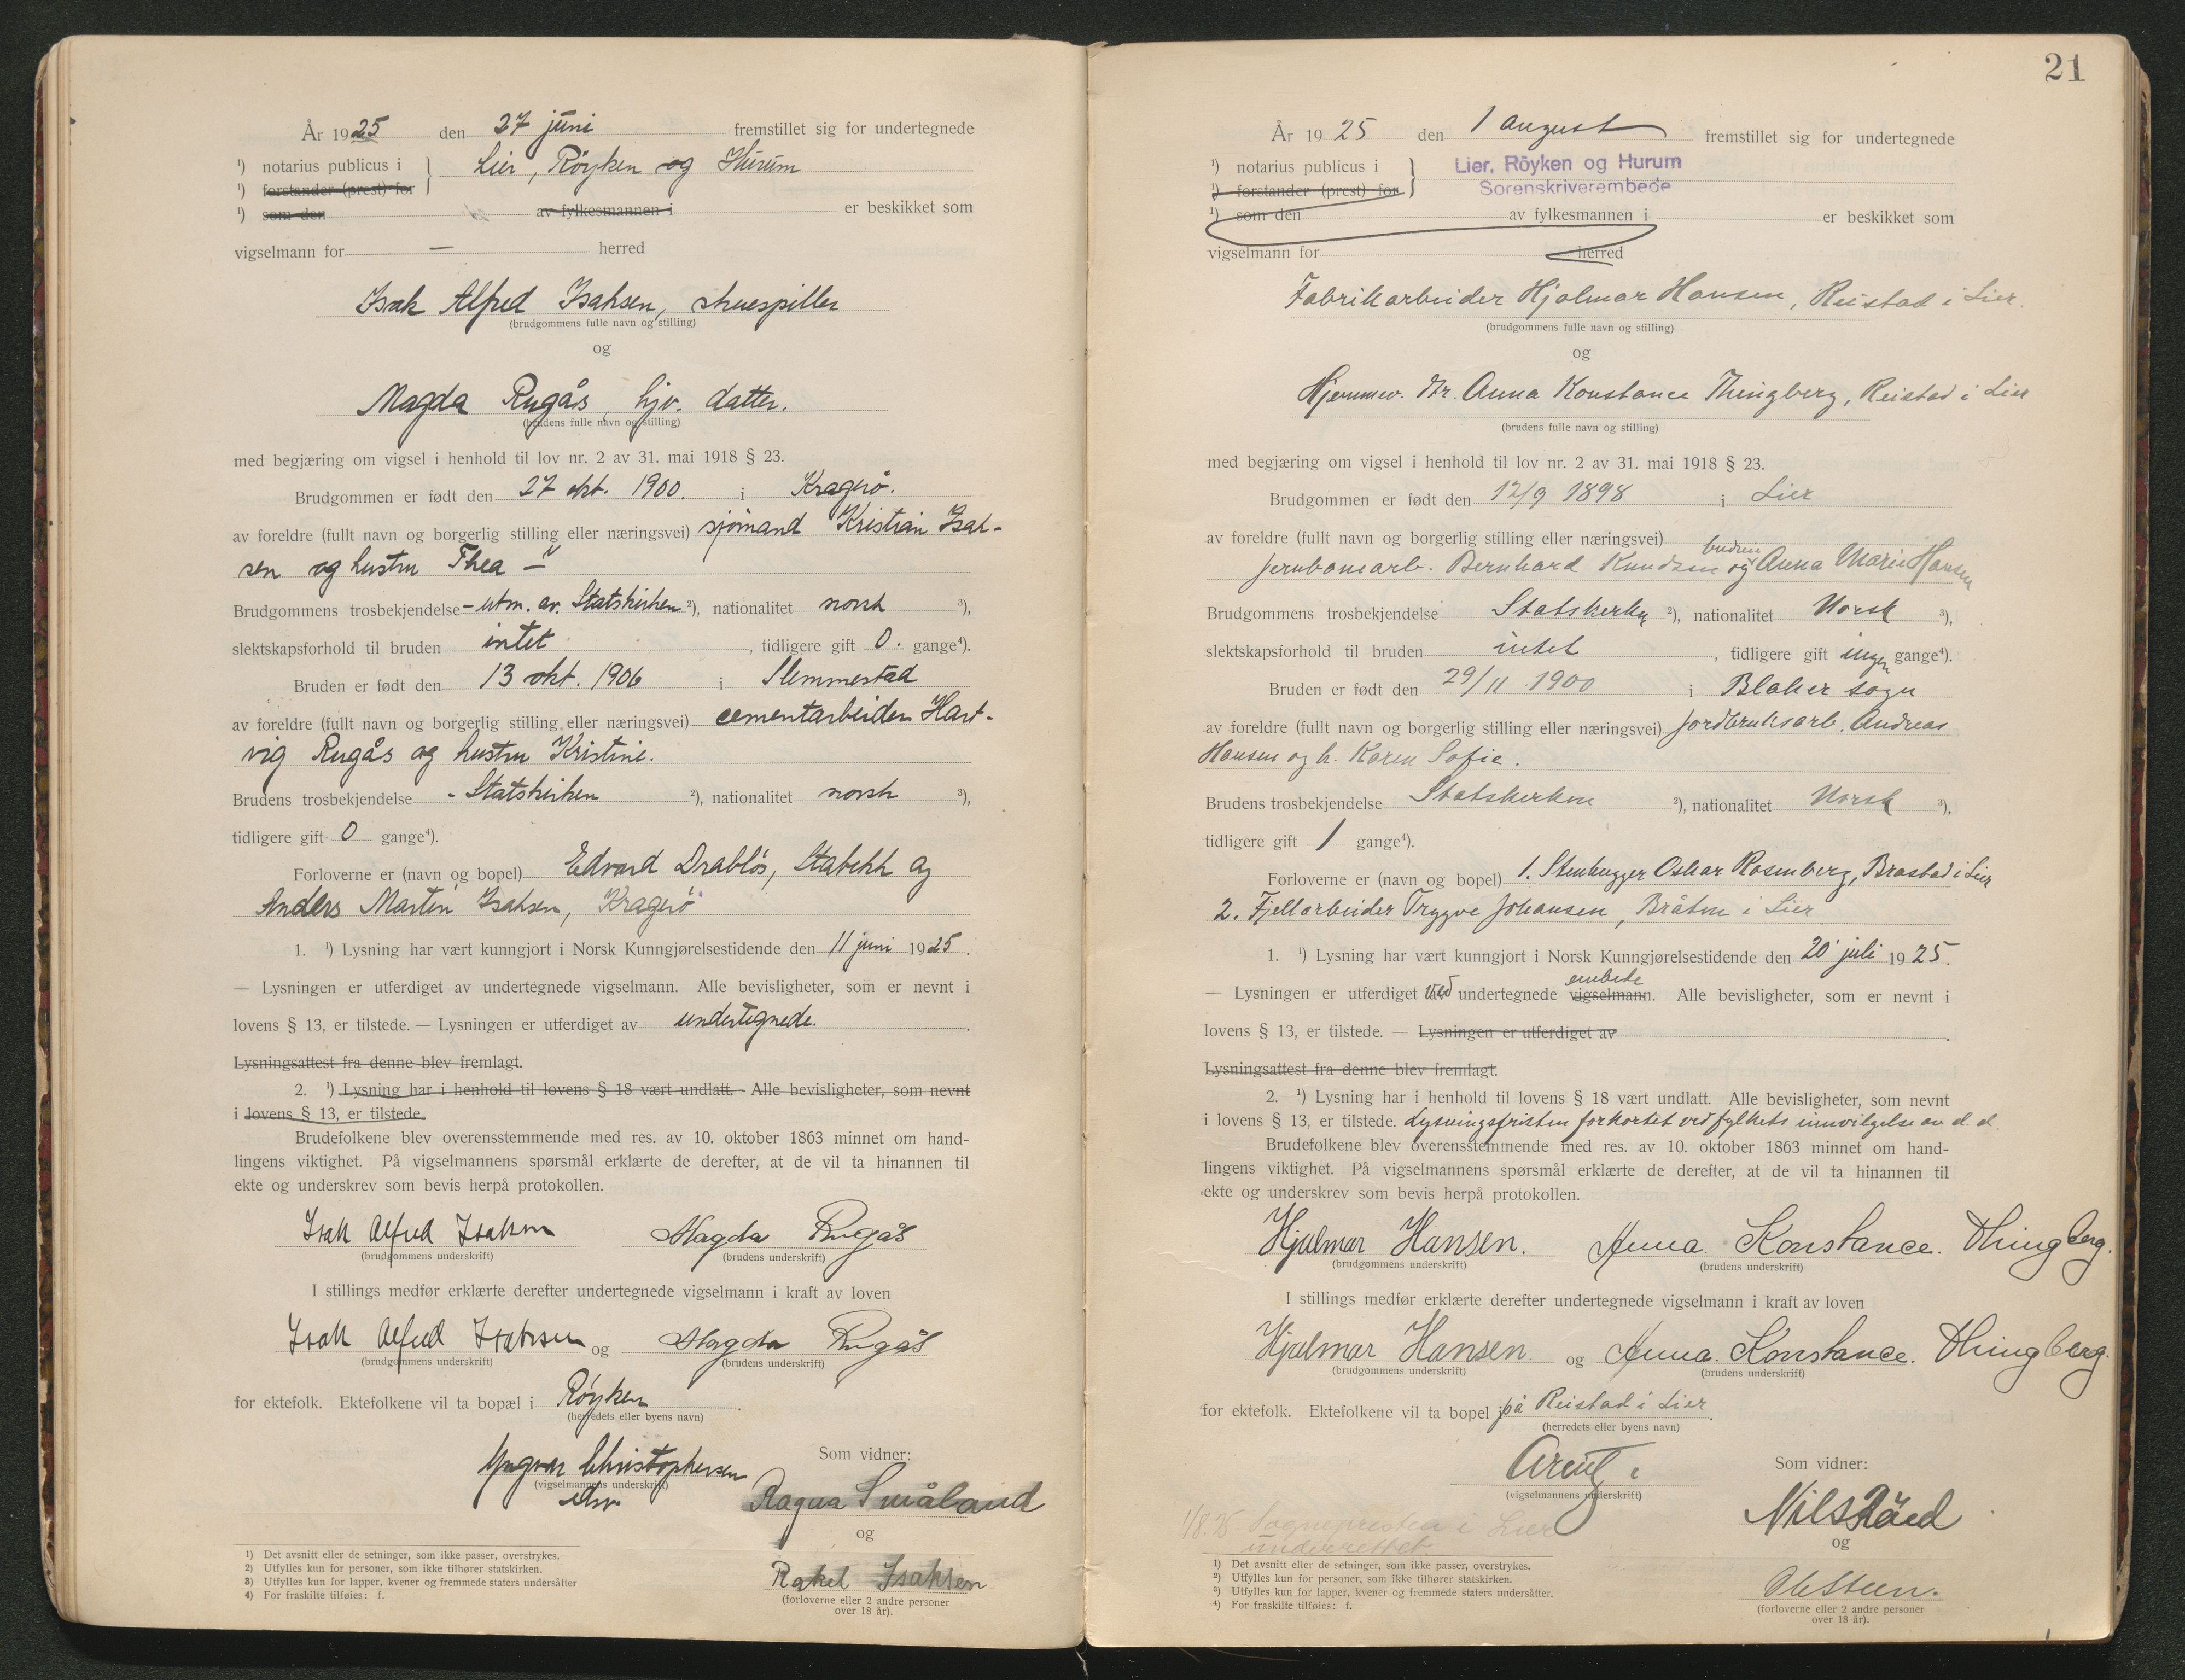 År 1925 den 27 juni fremstillet sig for undertegnede
¹) notarius publicus i } Lier, Röyken og Hurum
¹) forstander (prest) for
¹) som den av fylkesmannen i er beskikket som
vigselmann for — herred
Isak Alfred Isaksen, skuespiller
(brudgommens fulle navn og stilling)
og
Magda Rugås, hjv. datter.
(brudens fulle navn og stilling)
med begjæring om vigsel i henhold til lov nr. 2 av 31. mai 1918 § 23.
Brudgommen er født den 27 okt. 1900. i Kragerö.
av foreldre (fullt navn og borgerlig stilling eller næringsvei) sjömand Kristian Isak-
sen og hustru Thea
Brudgommens trosbekjendelse - utm. av. Statskirken ²), nationalitet norsk ³),
slektskapsforhold til bruden intet, tidligere gift 0. gange⁴).
Bruden er født den 13 okt. 1906 i Slemmestad
av foreldre (fullt navn og borgerlig stilling eller næringsvei) cementarbeider Hart-
vig Rugås og hustru Kristine.
Brudens trosbekjendelse - Statskirken ²), nationalitet norsk ³),
tidligere gift 0 gange⁴).
Forloverne er (navn og bopel) Edvard Drabløs, Stabekk og
Anders Martin Isaksen, Kragerö
1. ¹) Lysning har vært kunngjort i Norsk Kunngjørelsestidende den 11 juni 1925.
— Lysningen er utferdiget av undertegnede vigselmann. Alle bevisligheter, som er nevnt i
lovens § 13, er tilstede. — Lysningen er utferdiget av undertegnede.
Lysningsattest fra denne blev fremlagt.
2. ¹) Lysning har i henhold til lovens § 18 vært undlatt. - Alle bevisligheter, som nevnt
i lovens § 13, er tilstede.
Brudefolkene blev overensstemmende med res. av 10. oktober 1863 minnet om hand-
lingens viktighet. På vigselmannens spørsmål erklærte de derefter, at de vil ta hinannen til
ekte og underskrev som bevis herpå protokollen.
Isak Alfred Isaksen Magda Rugås
(brudgommens underskrift) (brudens underskrift)
I stillings medfør erklærte derefter undertegnede vigselmann i kraft av loven
Isak Alfred Isaksen og Magda Rugås
(brudgommens underskrift) (brudens underskrift)
for ektefolk. Ektefolkene vil ta bopæl i Röyken.
(herredets eller byens navn)
Yngvar Christophersen
(vigselmannens underskrift)
Som vidner:
Ragna Småland
og
Rakel Isaksen
(forloverne eller 2 andre personer
over 18 år).
1) Det avsnitt eller de setninger, som ikke passer, overstrykes.
2) Utfylles kun for personer, som ikke tilhører statskirken.
3) Utfylles kun for lapper, kvener og fremmede staters undersåtter
4) For fraskilte tilføies: f.
21
År 1925 den 1 august fremstillet sig for undertegnede
¹) notarius publicus i } Lier, Röyken og Hurum
¹) forstander (prest) for Sorenskriverembede
¹) som den av fylkesmannen i er beskikket som
vigselmann for herred
Fabrikarbeider Hjalmar Hansen, Reistad i Lier.
(brudgommens fulle navn og stilling)
og
Hjemmev. Dtr. Anna Konstance Thingberg, Reistad i Lier
(brudens fulle navn og stilling)
med begjæring om vigsel i henhold til lov nr. 2 av 31. mai 1918 § 23.
Brudgommen er født den 12/9 1898 i Lier
av foreldre (fullt navn og borgerlig stilling eller næringsvei)
jernbanearb. Bernhard Knudsen og Anna Marie Hansen
Brudgommens trosbekjendelse Statskerke ²), nationalitet Norsk ³),
slektskapsforhold til bruden intet, tidligere gift ingen gange⁴).
Bruden er født den 29/11 1900 i Blaker sogn
av foreldre (fullt navn og borgerlig stilling eller næringsvei) jordbruksarb. Andreas
Hansen og h. Karen Sofie.
Brudens trosbekjendelse Statskerken ²), nationalitet Norsk ³),
tidligere gift 1 gange⁴).
Forloverne er (navn og bopel) 1. Stenhugger Oskar Rosenberg, Brastad i Lier
2. Fjellarbeider Trygve Johansen, Bråten i Lier
1. ¹) Lysning har vært kunngjort i Norsk Kunngjørelsestidende den 20 juli 1925.
— Lysningen er utferdiget ved undertegnede vigselmann. embede Alle bevisligheter, som er nevnt i
lovens § 13, er tilstede. — Lysningen er utferdiget av
Lysningsattest fra denne blev fremlagt.
2. ¹) Lysning har i henhold til lovens § 18 vært undlatt. Alle bevisligheter, som nevnt
i lovens § 13, er tilstede. Lysningsfristen forkortet ved fylkets innvilgelse av d. d.
Brudefolkene blev overensstemmende med res. av 10. oktober 1863 minnet om hand-
lingens viktighet. På vigselmannens spørsmål erklærte de derefter, at de vil ta hinannen til
ekte og underskrev som bevis herpå protokollen.
Hjalmar Hansen. Anna. Konstance. Thingberg.
(brudgommens underskrift) (brudens underskrift)
I stillings medfør erklærte derefter undertegnede vigselmann i kraft av loven
Hjalmar Hansen og Anna. Konstance. Thingberg.
(brudgommens underskrift) (brudens underskrift)
for ektefolk. Ektefolkene vil ta bopel på Reistad i Lier.
(herredets eller byens navn)
Arentz
(vigselmannens underskrift)
Som vidner:
og
Ole Steen.
(forloverne eller 2 andre personer
over 18 år).
1/8.25 Sognepresten i Lier
underrettet
1) Det avsnitt eller de setninger, som ikke passer, overstrykes.
2) Utfylles kun for personer, som ikke tilhører statskirken.
3) Utfylles kun for lapper, kvener og fremmede staters undersåtter.
4) For fraskilte tilføies: f.